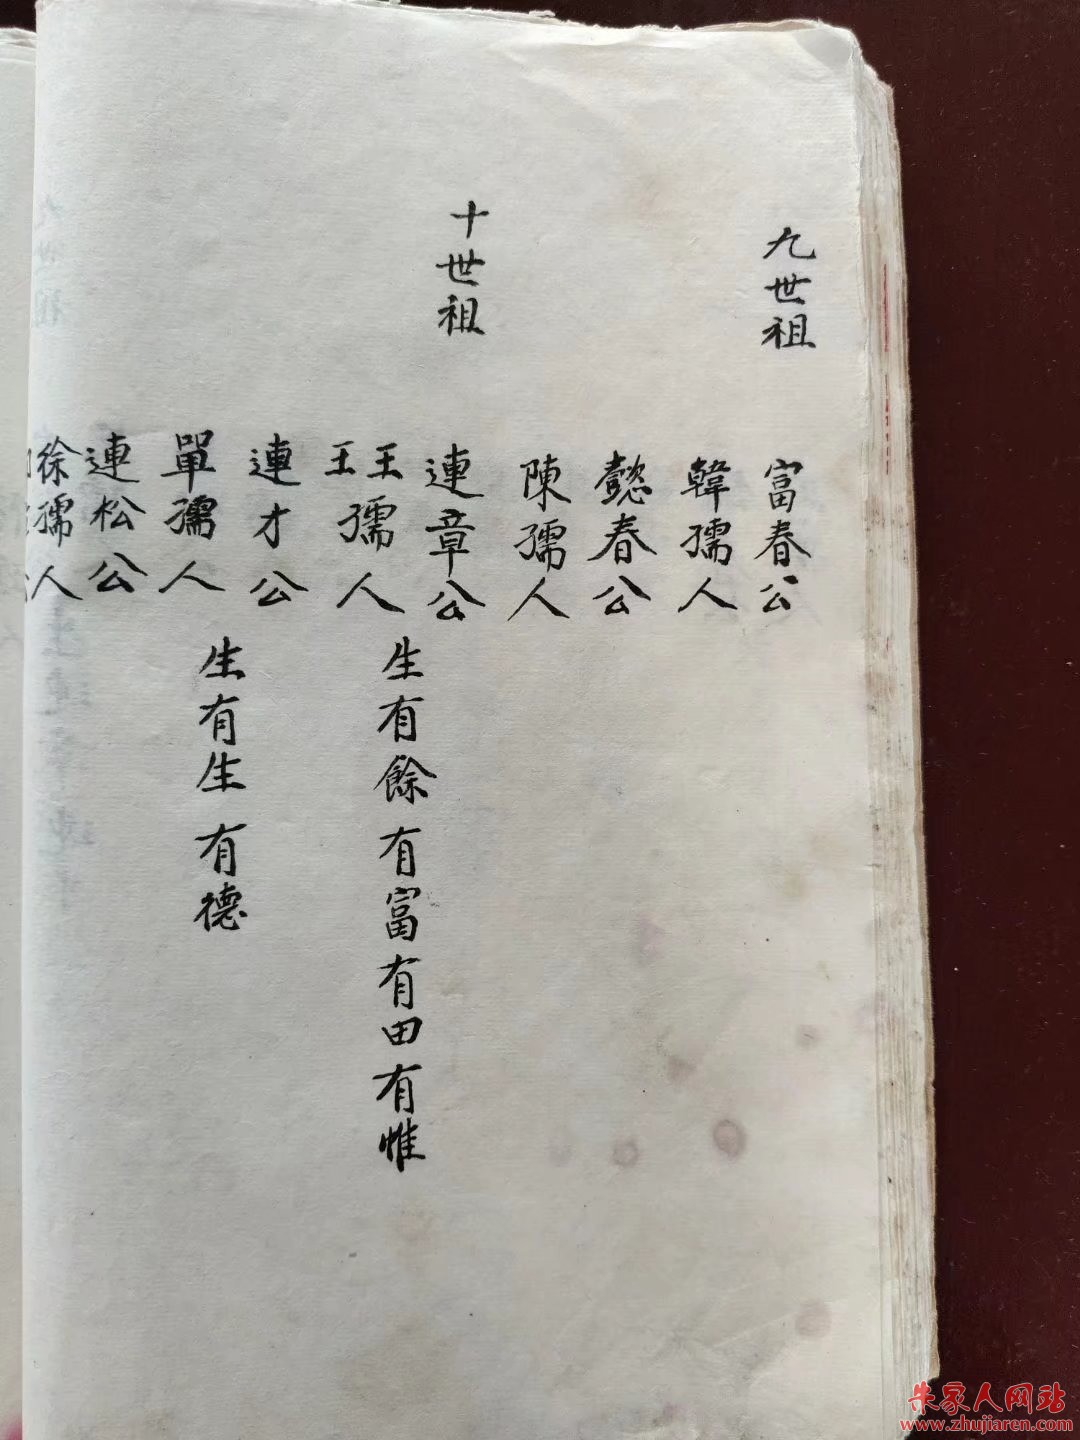 九世祖
富春公
韓孺人
懿春公
陳孺人
十世祖
連章公
王王孺人
生有餘有富有田有惟
連才公
單孺人
生有生有德
連松公
徐孺人
朱家人网站
www.zhujiaren.com